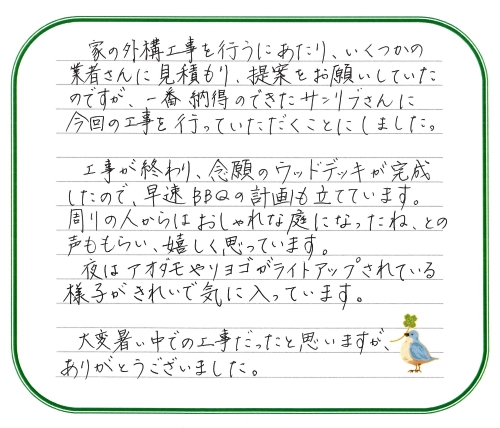 家の外構工事を行うにあたり、いくつかの
業者さんに見積もり、提案をお願いしていた
のですが、一番納得のできたサンリブさんに
今回の工事を行っていただくことにしました。
工事が終わり、念願のウッドデッキが完成
したので、早速BBQの計画も立てています。
周りの人からはおしゃれな庭になったね、との
声ももらい、嬉しく思っています。
夜はアオダモやソヨゴがライトアップされている
様子がきれいで気に入っています。
大変暑い中での工事だったと思いますが、
ありがとうございました。